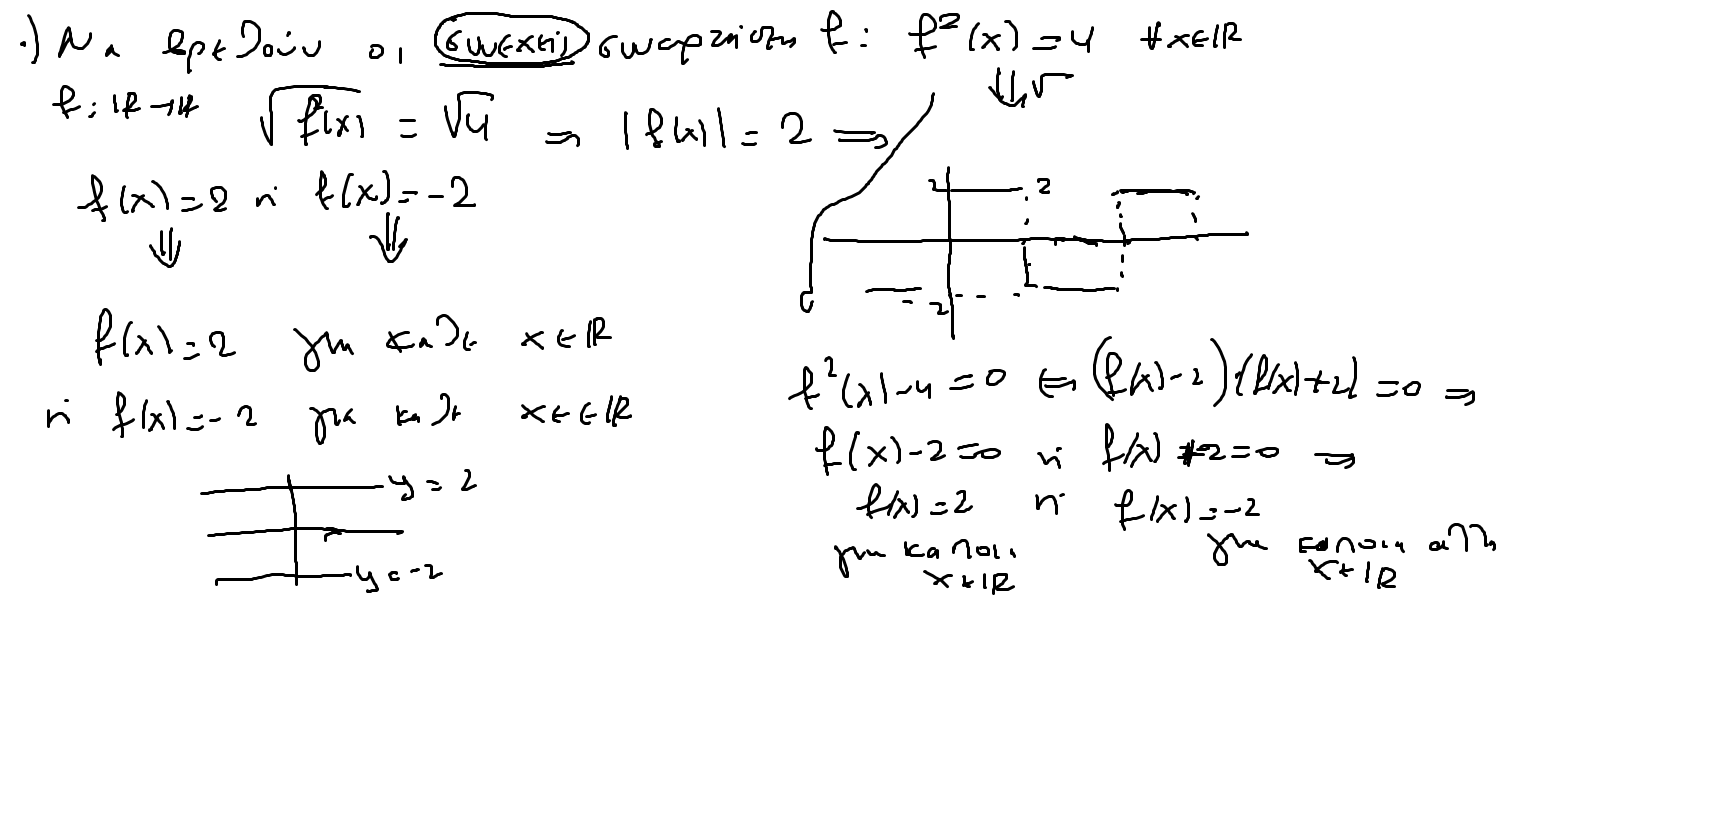 ·) Να βρεθούν οι συνεχείς συναρτήσεις f: f²(x) = 4 ∀x∈ℝ
f: ℝ→ℝ √f²(x) = √4 ⇒ |f(x)| = 2 ⇒ ⇓√
f(x) = 2 ή f(x) = -2
⇓ ⇓
f(x) = 2 για κάθε x∈ℝ
ή f(x) = -2 για κάθε x∈∈ℝ
y = 2
y = -2
2 2
-2
f²(x) - 4 = 0 ⇔ (f(x)-2)(f(x)+2) = 0 ⇒
f(x) - 2 = 0 ή f(x) + 2 = 0 ⇒
f(x) = 2 ή f(x) = -2
για κάποια για κάποια άλλα
x∈ℝ x∈ℝ